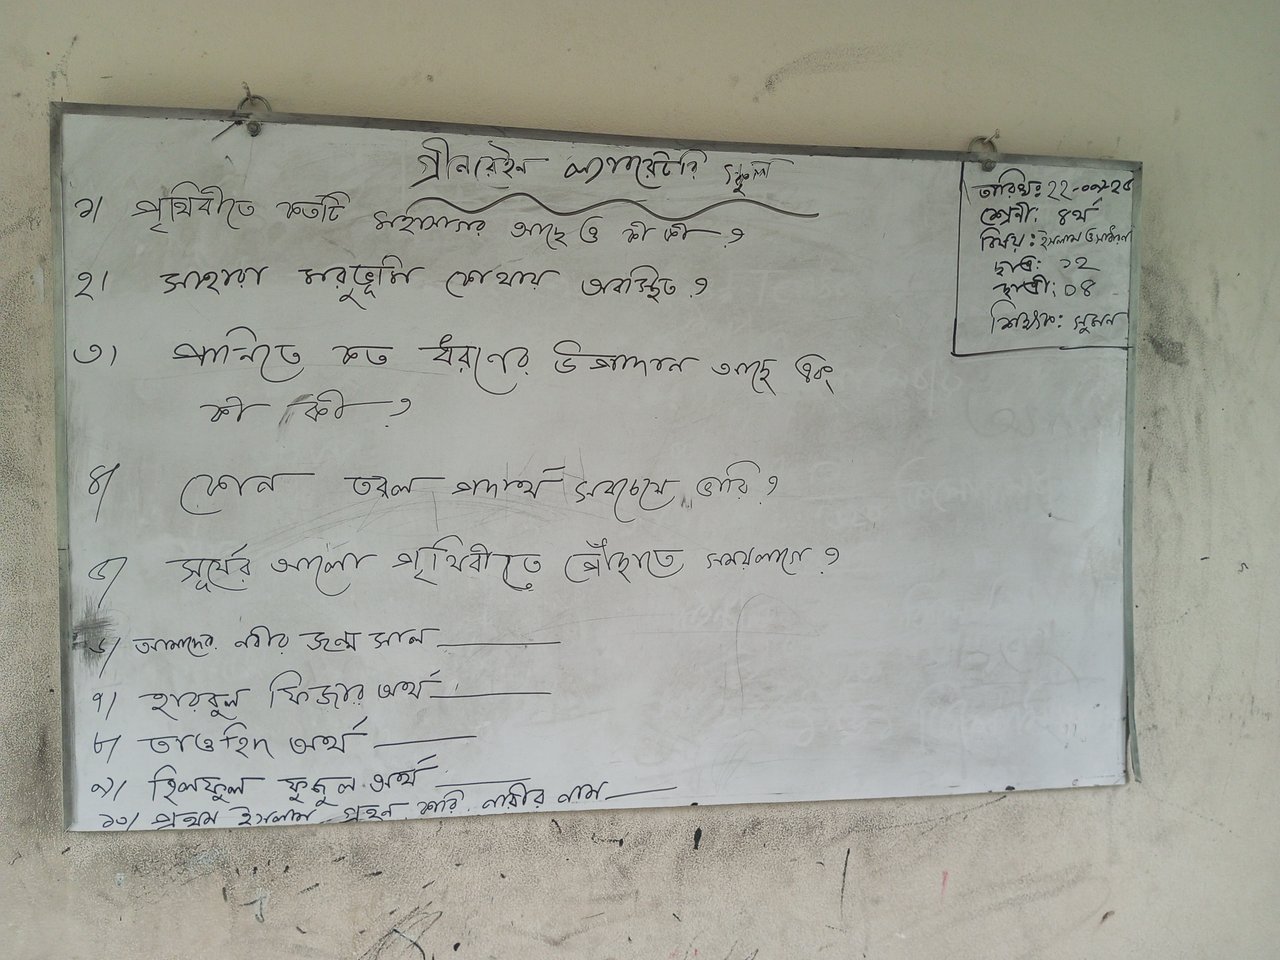 গ্রীনরেইন ল্যাবরেটরি স্কুল
তারিখ: ২২-০৯-২৫
শ্রেণী: ৪র্থ
বিষয়: ইসলাম ও সাধারন
ছাত্র: ১২
ছাত্রী: ০৪
শিক্ষক: সুমন
১। পৃথিবীতে কতটি মহাসাগর আছে ও কী কী ?
২। সাহারা মরুভূমি কোথায় অবস্থিত ?
৩। পানিতে কত ধরণের উপাদান আছে এবং
কী কী ?
৪। কোন তরল পদার্থ সবচেয়ে ভারি ?
৫। সূর্যের আলো পৃথিবীতে পৌঁছাতে সময়লাগে ?
৬। আমাদের নবীর জন্ম সাল
৭। হারবুল ফিজার অর্থ
৮। তাওহিদ অর্থ
৯। হিলফুল ফুজুল অর্থ
১০। প্রথম ইসলাম গ্রহন কারি নারীর নাম